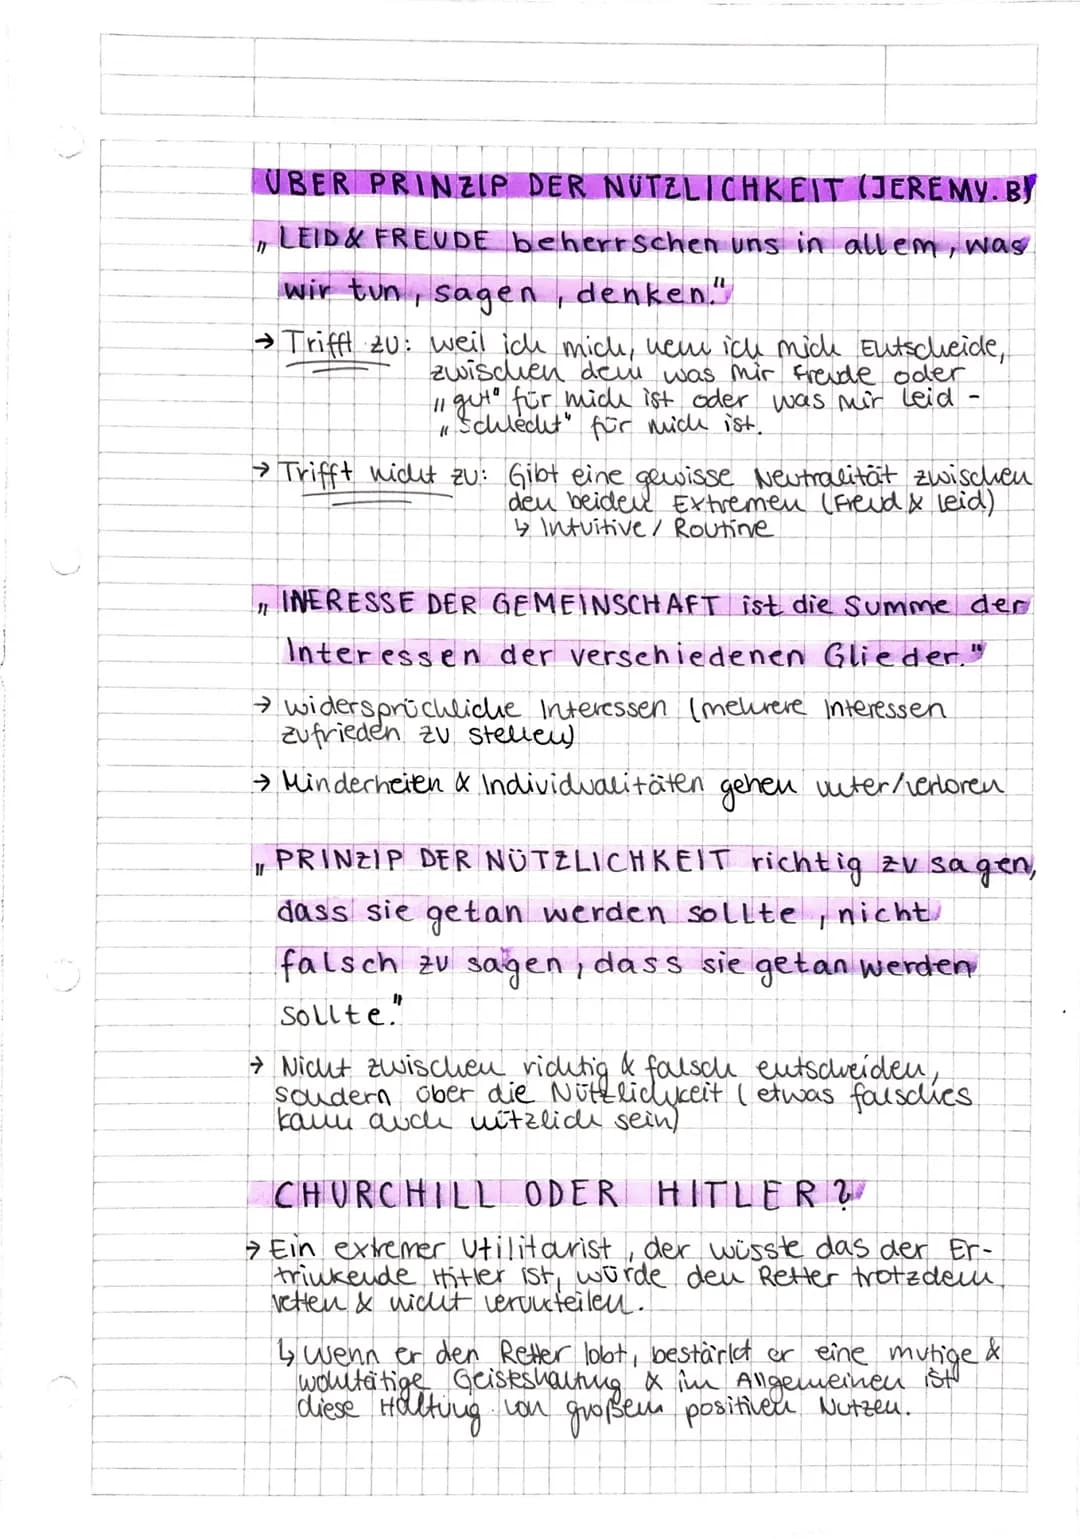 ÜBER PRINZIP DER NÜTZLICHKEIT (JEREMY. B)
„LEID & FREUDE beherrschen uns in allem, was
wir tun, sagen, denken."
→ Trifft zu: weil ich mich, wenn ich mich Entscheide,
zwischen dem was mir Freude oder
„gut" für mich ist oder was mir leid -
„schlecht" für mich ist.
→ Trifft nicht zu: Gibt eine gewisse Neutralität zwischen
den beiden Extremen (Freud & leid)
↳ Intuitive / Routine
„INERESSE DER GEMEINSCHAFT ist die Summe der
Interessen der verschiedenen Glieder."
→ widersprüchliche Interessen (mehrere Interessen
zufrieden zu stellen)
→ Minderheiten & Individualitäten gehen unter/verloren
„PRINZIP DER NÜTZLICHKEIT richtig zu sagen,
dass sie getan werden sollte, nicht
falsch zu sagen, dass sie getan werden
sollte."
→ Nicht zwischen richtig & falsch entscheiden,
sondern über die Nützlichkeit (etwas falsches
kann auch nützlich sein)
CHURCHILL ODER HITLER?
→ Ein extremer Utilitarist, der wüsste das der Er-
trinkende Hitler ist, würde den Retter trotzdem
retten & nicht verurteilen.
↳ Wenn er den Retter lobt, bestärkt er eine mutige &
wohltätige Geisteshaltung & im Allgemeinen ist
diese Haltung von großem positiven Nutzen.